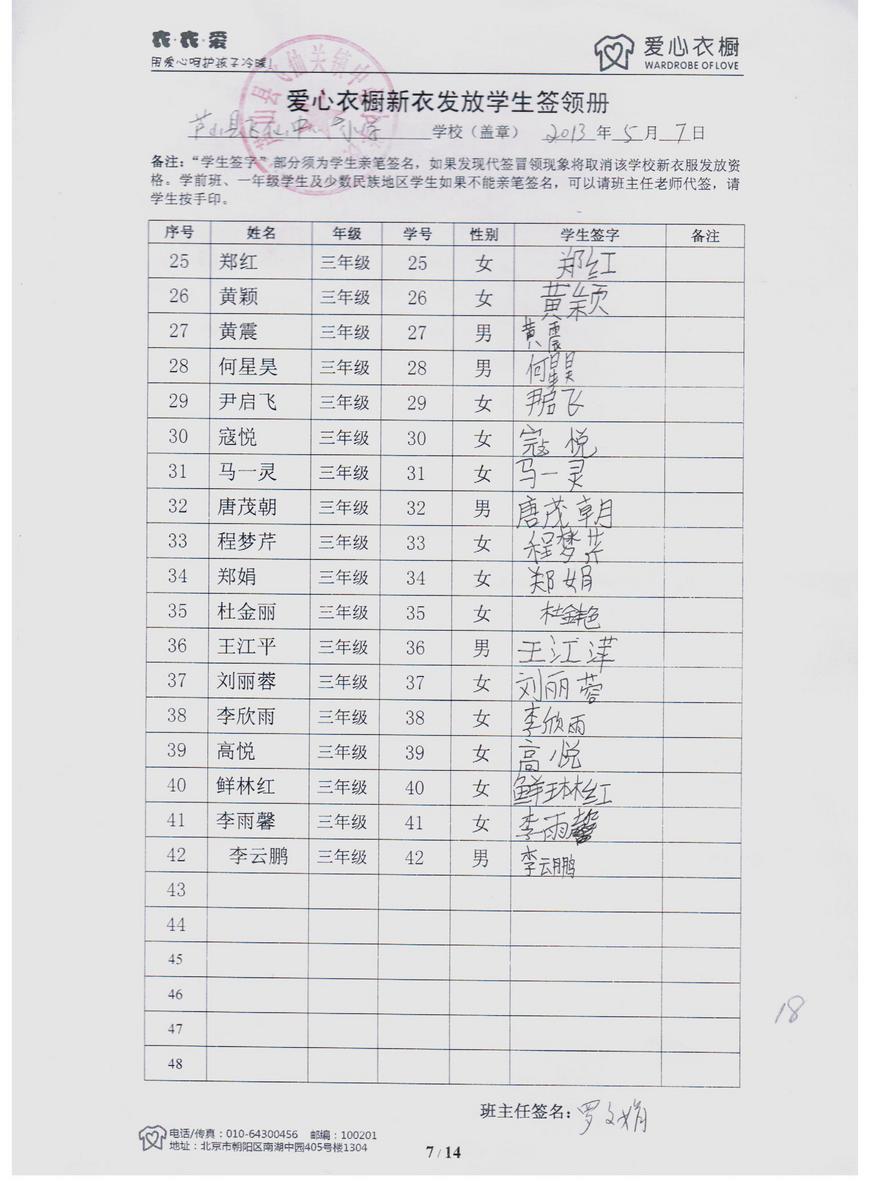 衣·衣·爱
用爱心呵护孩子冷暖!
爱心衣橱
WARDROBE OF LOVE
爱心衣橱新衣发放学生签领册
芦山县飞仙 中 小学 学校（盖章） 2013 年 5 月 7 日
备注：“学生签字”部分须为学生亲笔签名，如果发现代签冒领现象将取消该学校新衣服发放资
格。学前班、一年级学生及少数民族地区学生如果不能亲笔签名，可以请班主任老师代签，请
学生按手印。
序号 姓名 年级 学号 性别 学生签字 备注
25 郑红 三年级 25 女 郑红
26 黄颖 三年级 26 女 黄颖
27 黄震 三年级 27 男 黄震
28 何星昊 三年级 28 男 何星昊
29 尹启飞 三年级 29 女 尹启飞
30 寇悦 三年级 30 女 寇悦
31 马一灵 三年级 31 女 马一灵
32 唐茂朝 三年级 32 男 唐茂朝
33 程梦芹 三年级 33 女 程梦芹
34 郑娟 三年级 34 女 郑娟
35 杜金丽 三年级 35 女 杜金艳
36 王江平 三年级 36 男 王江萍
37 刘丽蓉 三年级 37 女 刘丽蓉
38 李欣雨 三年级 38 女 李欣雨
39 高悦 三年级 39 女 高悦
40 鲜林红 三年级 40 女 鲜琳红
41 李雨馨 三年级 41 女 李雨馨
42 李云鹏 三年级 42 男 李云鹏
43
44
45
46
47
48
18
班主任签名：罗文娟
电话/传真：010-64300456 邮编：100201
地址：北京市朝阳区南湖中园405号楼1304
7 / 14